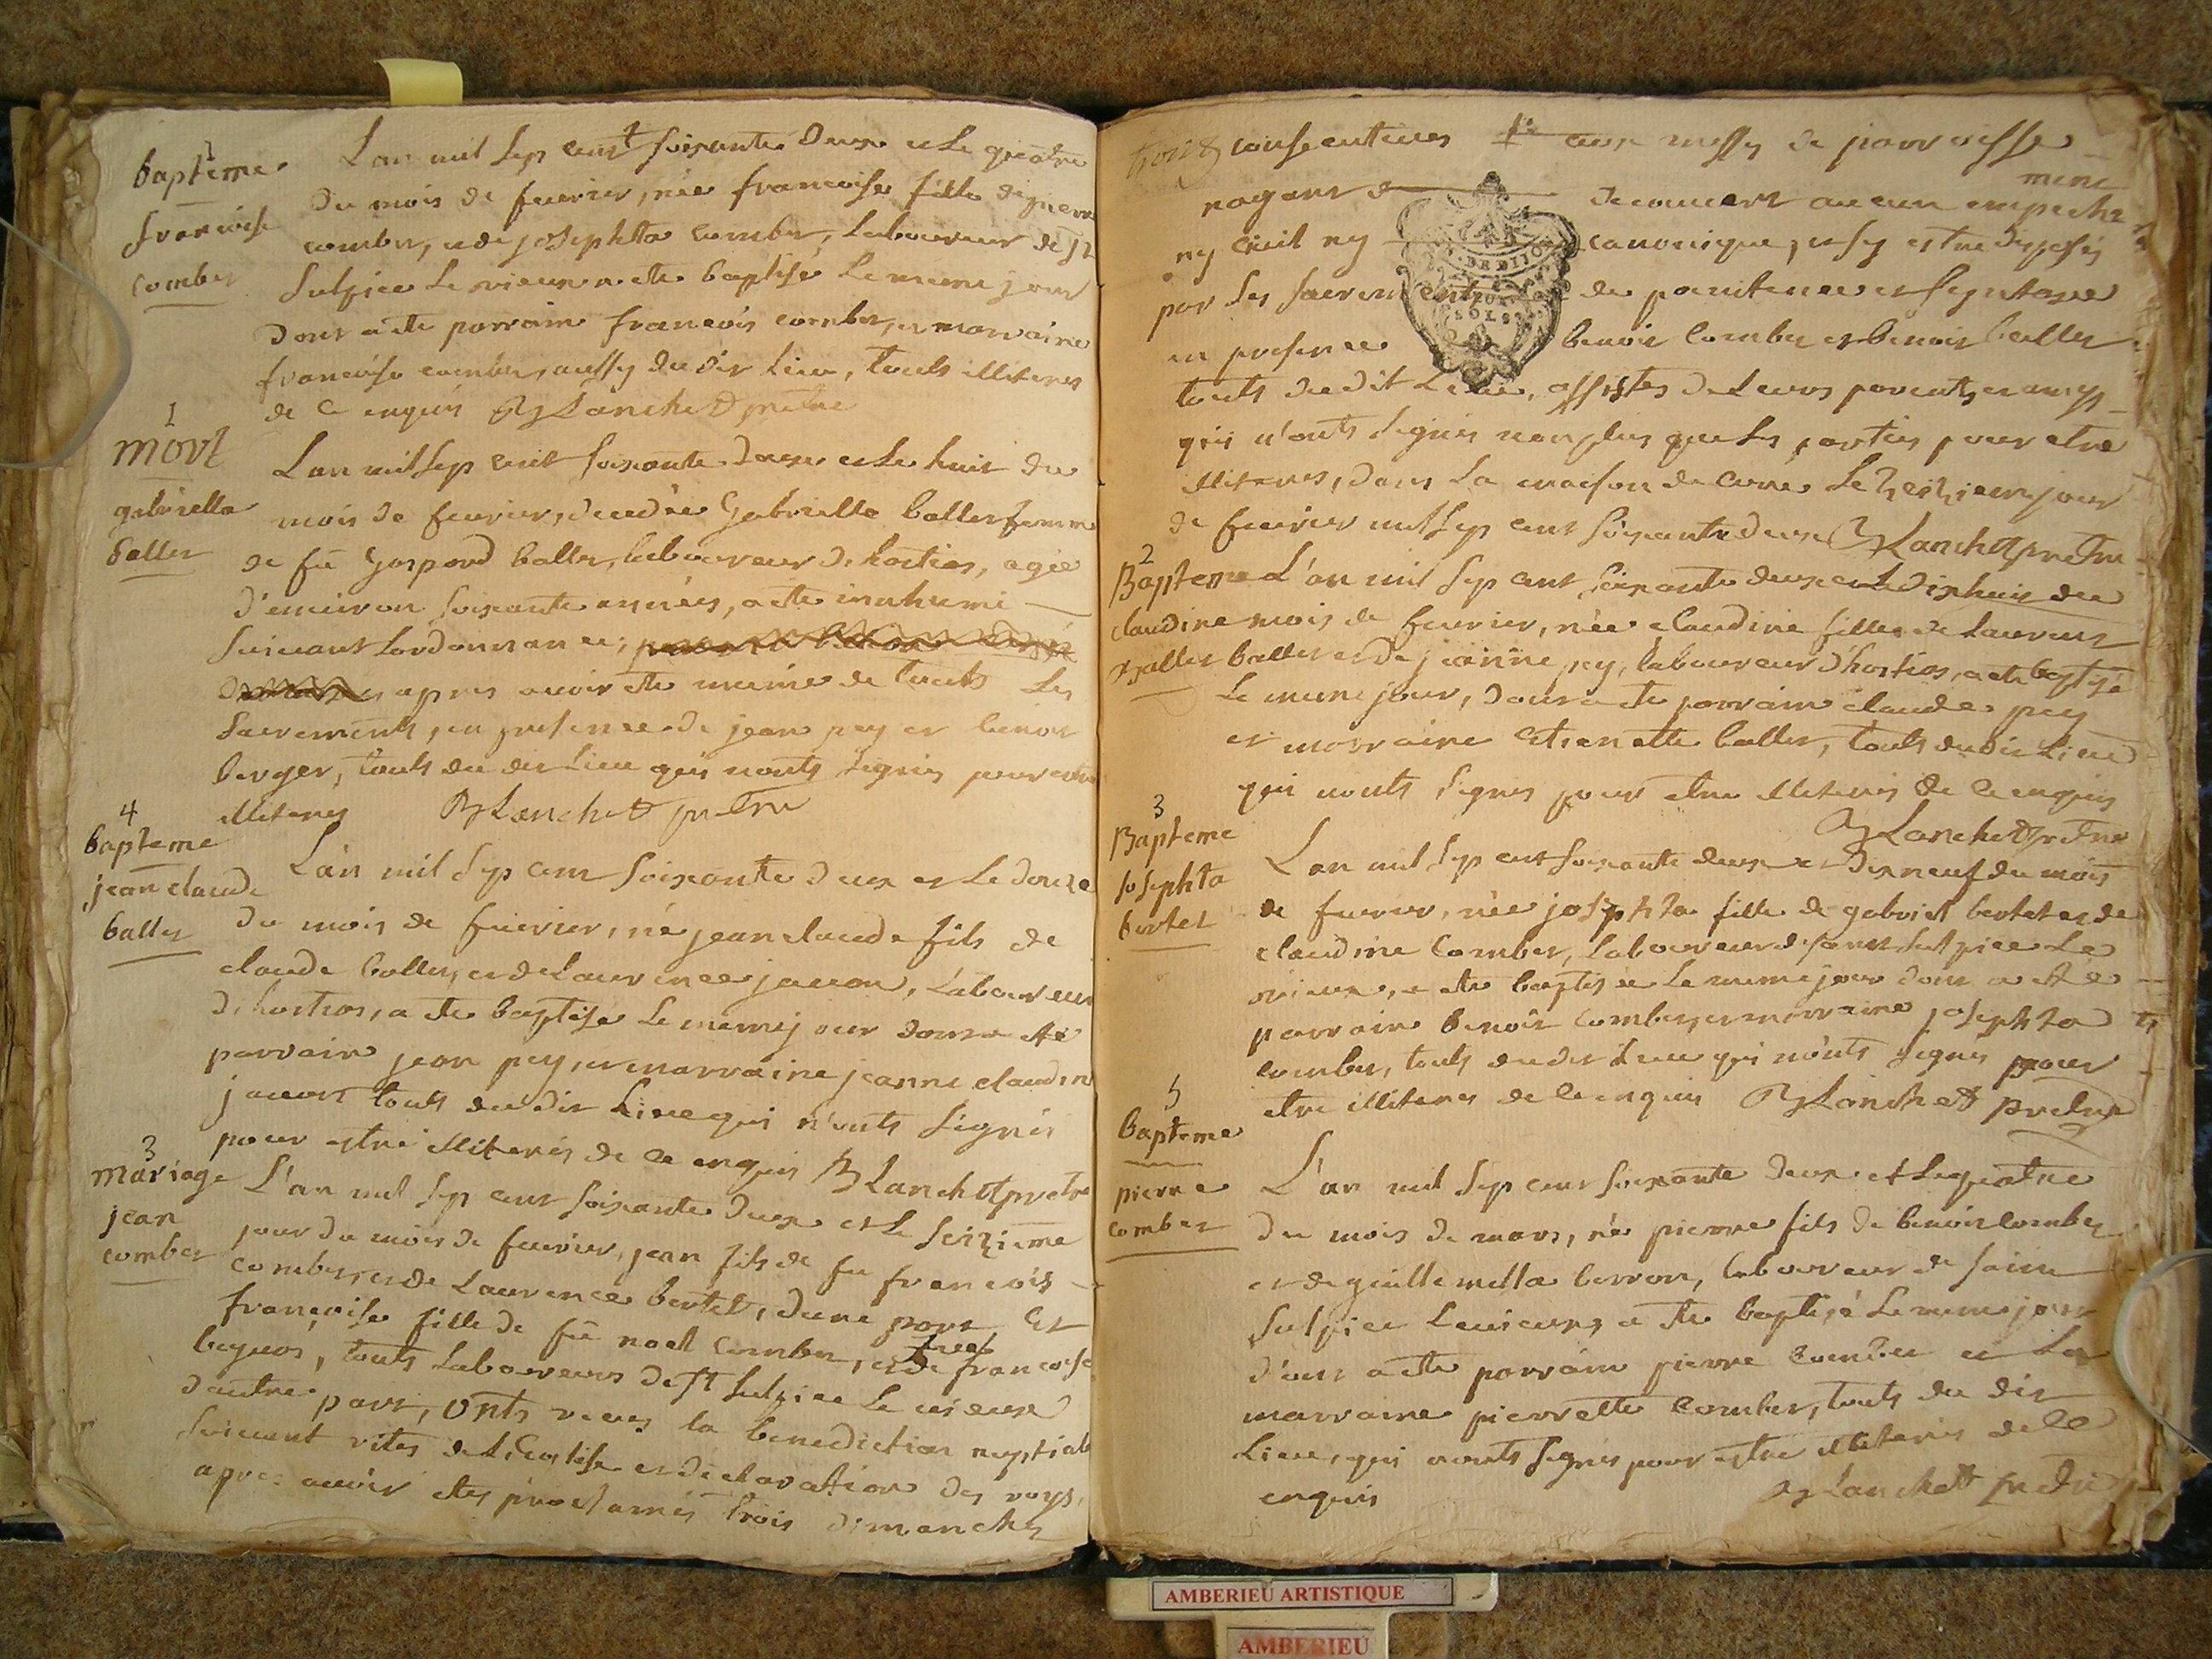 bapteme
francoise
combet
L'an mil sep cent soixante deux et le quatre
du mois de fevrier, née francoise fille de pierre
combet, et de josephta combet, laboureur de St
Sulpice le vieux a ete baptisé le meme jour
dont a ete parrain francois combet, et marraine
francoise combet, aussy du dit lieu, touts illiterés
de ce enquis Blanchet pretre
1
mort
gabriella
ballet
L'an mil sep cent soixante deux et le huit du
mois de fevrier, decedée Gabrielle ballet femme
de fu Gaspard ballet, laboureur d'hostias, agée
d'environ soixante années, a ete innhumé
suivant lordonnance,
apres avoir ete munie de touts les
sacrements, en presence de jean pey et benoit
berger, touts du dit lieu qui n'onts signés pour etre
illiterés Blanchet pretre
4
bapteme
jean claude
ballet
L'an mil sep cent soixante deux et le douze
du mois de fevrier, né jean claude fils de
claude ballet, et de laurence javon, laboureur
d'hostias, a ete baptise le meme jour dont a eté
parrain jean pey, et marraine jeanne claudine
javon touts du dit lieu qui n'onts signés
pour estre illiterés de ce enquis Blanchet pretre
3
mariage
jean
combet
L'an mil sep cent soixante deux et le seizieme
jour du mois de fevrier, jean fils de fu francois
combet, et de laurence bertet, d'une part Et
françoise fille de fu noel combet, et de francoise
touts laboureurs de St Sulpice le vieux
d'autre part, onts recus la benediction nuptiale
suivant rites de l'Eglise et déclaration des roys,
apres avoir etes proclamés trois dimanches
trois consecutives aux messes de parroisse
nayant decouvert aucun empeche
ment
ny civil ny canonique, et sy estre disposés
par les sacrements de penitence et
en presence benoit combet et benoit ballet
touts du dit lieu, assistes de leurs parents et amys
qui n'onts signés non plus que les parties pour etre
illiterés, dans la maison de curé le seizieme jour
de fevrier mil sep cent soixante deux Blanchet pretre
2
Bapteme
claudine
Ballet
L'an mil sep cent soixante deux et le dixhuit du
mois de fevrier, née claudine fille de laurent
ballet et de jeanne pey, laboureur d'hostias, a ete baptisé
le meme jour, dont a ete parrain claude pey
et marraine etienette ballet, touts du dit lieu
qui n'onts signés pour etre illiterés de ce enquis
Blanchet pretre
3
Bapteme
Josephta
bertet
L'an mil sep cent soixante deux et dixneuf du mois
de fevrier, née josephta fille de gabriel bertet et de
claudine combet, laboureur de saint sulpice le
vieux, a ete baptisée le meme jour dont a eté
parrain benoit combet, et marraine josephta
combet, touts du dit lieu qui n'onts signés pour
etre illiterés de ce enquis Blanchet pretre
5
bapteme
pierre
combet
L'an mil sep cent soixante deux et le quatre
du mois de mars, né pierre fils de benoit combet
et de guillemetta berron, laboureur de saint
sulpice le vieux, a ete baptisé le meme jour
dont a ete parrain pierre combet et la
marraine pierrette combet, touts du dit
lieu, qui n'onts signés pour estre illiterés de ce
enquis Blanchet pretre
AMBERIEU ARTISTIQUE
AMBERIEU